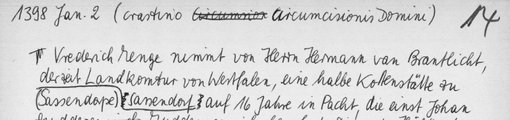 1398 Jan. 2 (crastino Circumcision circumcisionis Domini) 14
Vrederich Menge nimmt von Herrn Hermann van Brantlicht,
derzeit Landkomtur von Westfalen, eine halbe Kottenstätte zu
(Sassendorpe) (Sassendorf) auf 16 Jahre in Pacht, die einst Johan